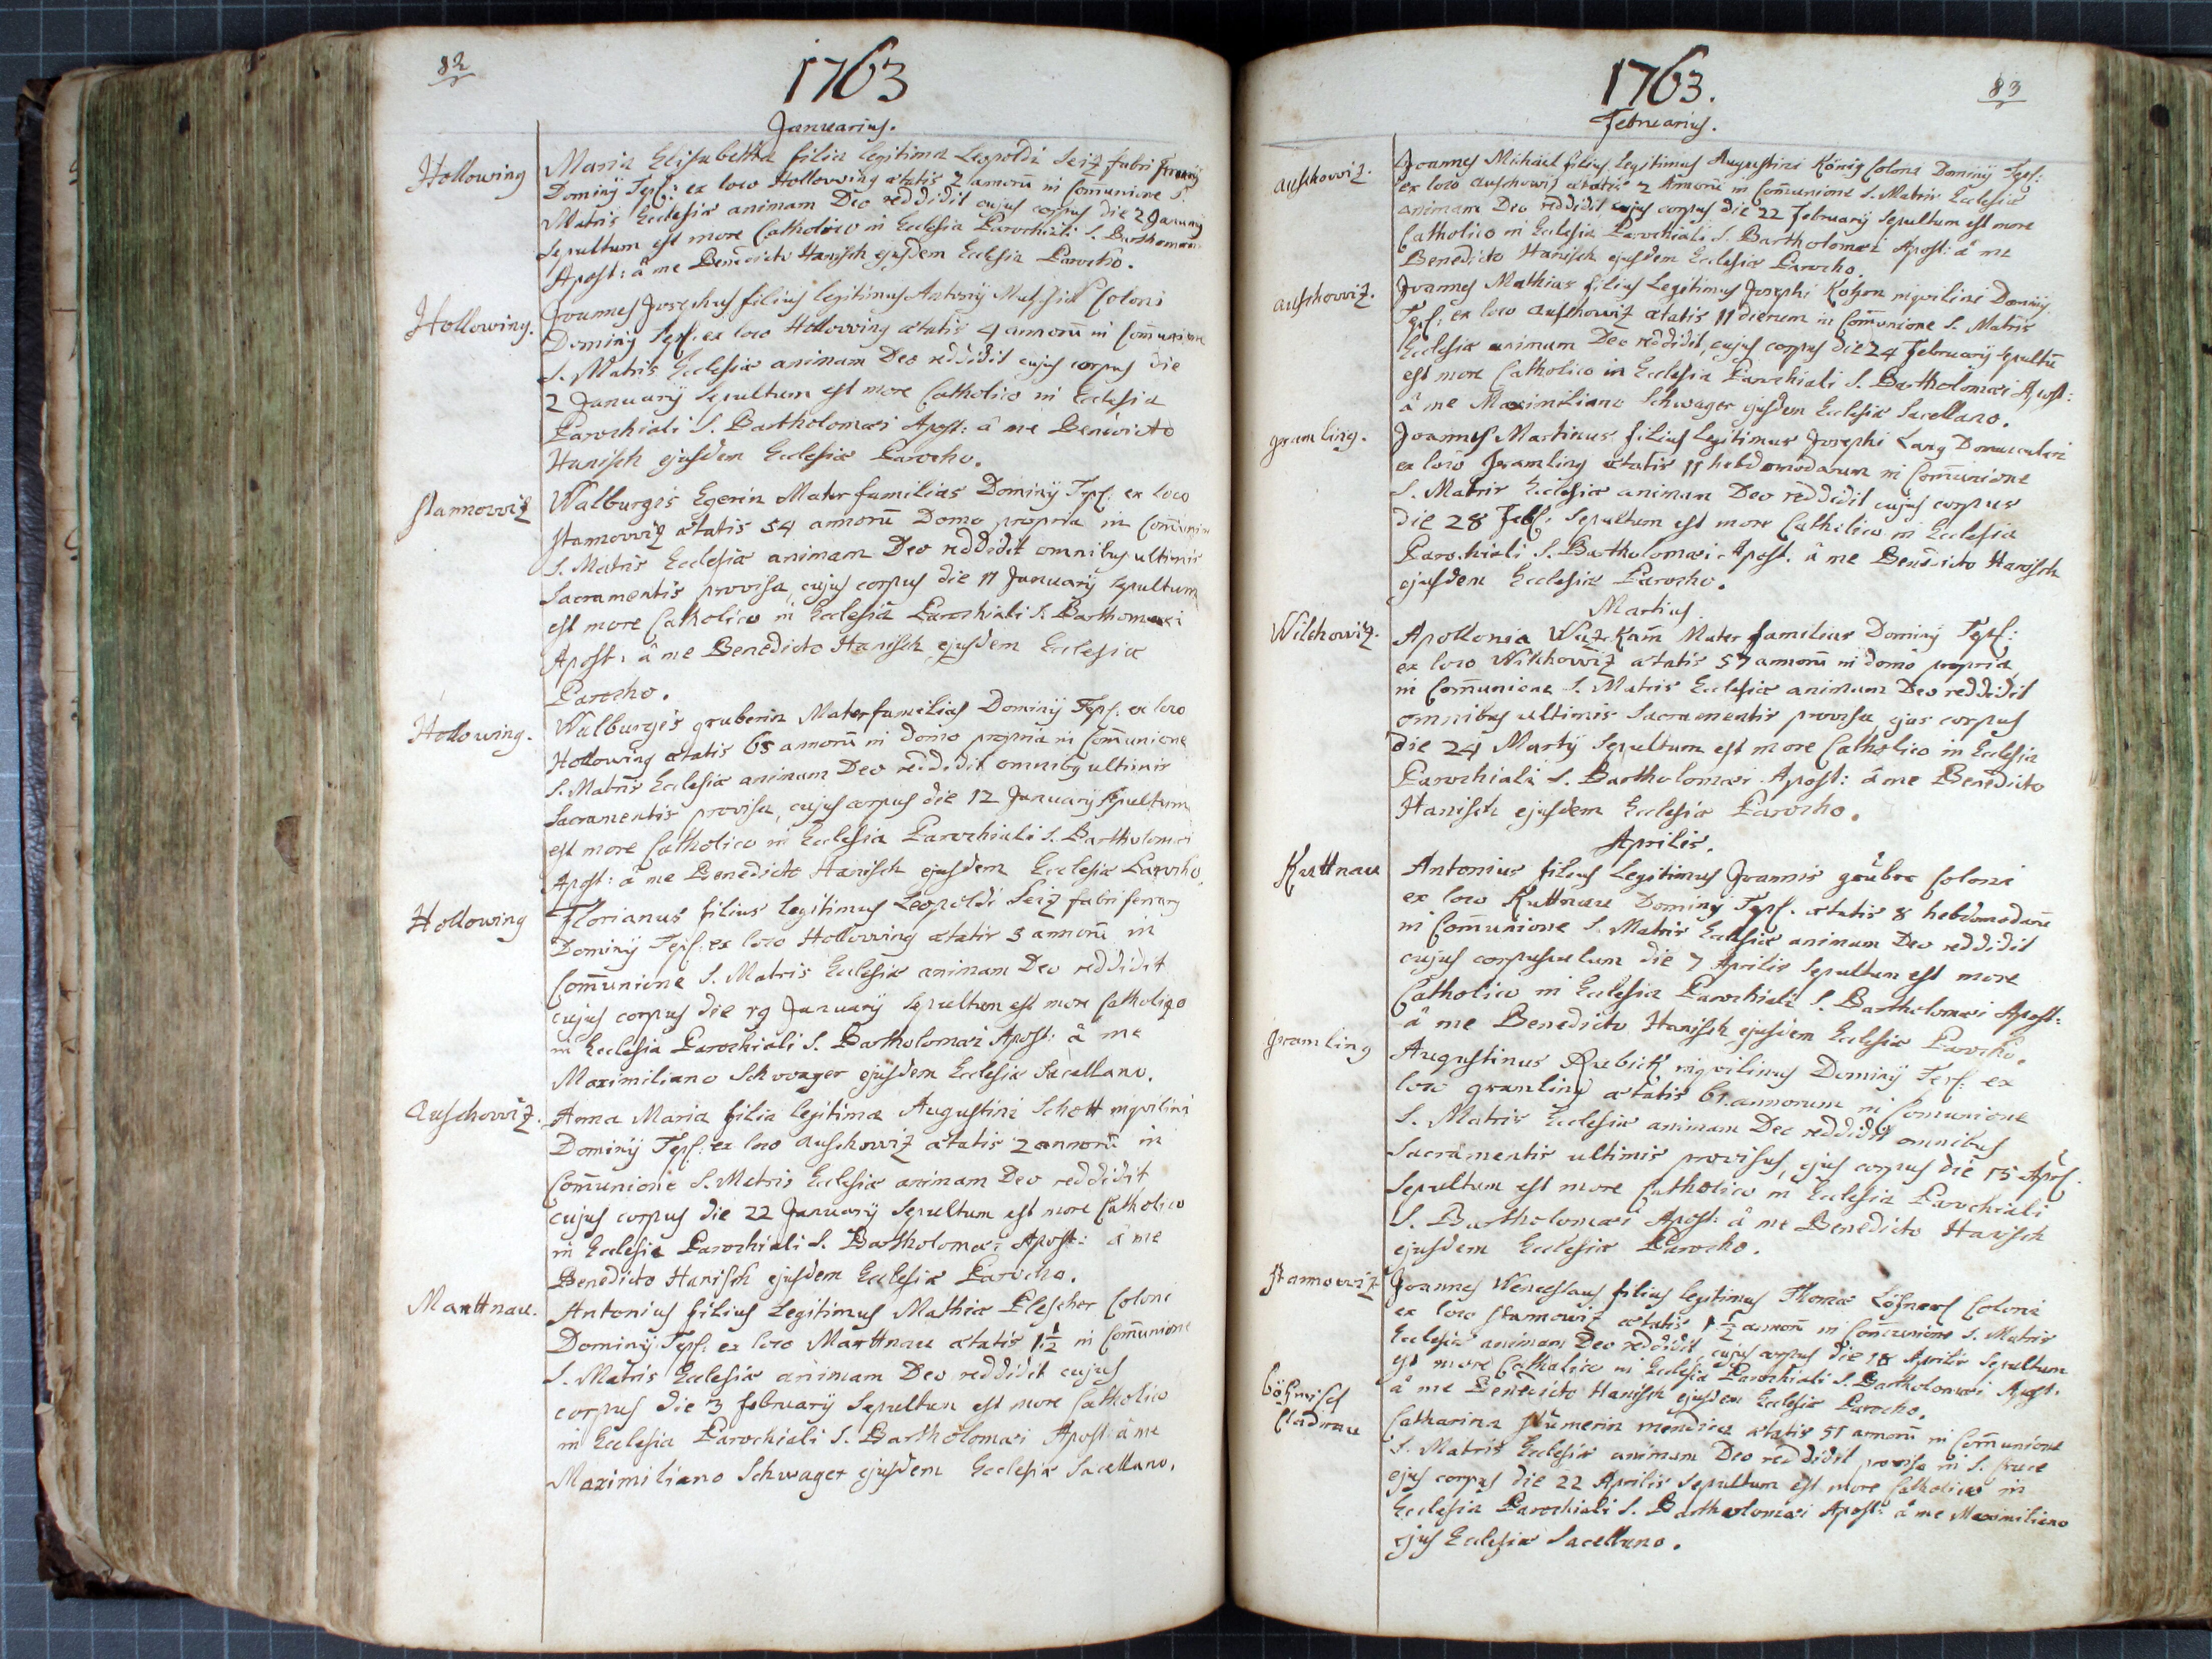 82
1763
Januarius.
Hollowing
Maria Elisabetha filia legitima Leopoldi Seiz fabri ferrarij
Dominij Tepl: ex loco Hollowing ætatis 2 annorū in Comunione S.
Matris Ecclesiæ animam Deo reddidit cujus corpus die 2 Januarij
sepultum est more Catholico in Ecclesia Parochiali S. Barthomæi
Apost: â me Benedicto Hanisch ejusdem Ecclesiæ Parocho.
Hollowing.
Joannes Josephus filius legitimus Antonij Coloni
Dominij Tepl: ex loco Hollowing ætatis 4 annorū in Com̄unione
S. Matris Ecclesiæ animam Deo reddidit cujus corpus die
2 Januarij Sepultum est more Catholico in Ecclesia
Parochiali S. Bartholomæi Apost: â me Benedicto
Hanisch ejusdem Ecclesiæ Parocho.
Stannowiz
Walburgis Egerin Mater familias Dominij Tepl: ex loco
Stannowiz ætatis 54 annorū Domo propria in Com̄unione
S. Matris Ecclesiæ animam Deo reddidit omnibus ultimis
Sacramentis provisa, cujus corpus die 11 Januarij sepultum
est more Catholico in Ecclesia Parochiali S. Barthomæi
Apost: â me Benedicto Hanisch ejusdem Ecclesiæ
Parocho.
Hollowing.
Walburgis gruberin Mater familias Dominij Tepl: ex loco
Hollowing ætatis 65 annorū in domo propria in Com̄unione
S. Matris Ecclesiæ animam Deo reddidit omnibq ultimis
Sacramentis provisa, cujus corpus die 12 Januarij sepultum
est more Catholico in Ecclesia Parochiali S. Bartholomæi
Apost: â me Benedicto Hanisch ejusdem Ecclesiæ Parocho.
Hollowing
Florianus filius legitimus Leopoldi Seiz fabri ferrarij
Dominij Tepl: ex loco Hollowing ætatis 3 annorū in
Com̄unione S. Matris Ecclesiæ animam Deo reddidit
cujus corpus die 19 Januarij sepultum est more Catholico
in Ecclesia Parochiali S. Bartholomæi Apost: â me
Maximiliano Schwager ejusdem Ecclesiæ Sacellano.
Auschowiz.
Anna Maria filia legitima Augustini Schott inqvilini
Dominij Tepl: ex loco Auschowiz ætatis 2 annorū in
Com̄unione S. Matris Ecclesiæ animam Deo reddidit
cujus corpus die 22 Januarij Sepultum est more Catholico
in Ecclesia Parochiali S. Bartholomæi Apost: â me
Benedicto Hanisch ejusdem Ecclesiæ Parocho.
Marttnau.
Antonius filius Legitimus Mathiæ Plescher Coloni
Dominij Tepl: ex loco Marttnau ætatis 1 1/2 in Com̄unione
S. Matris Ecclesiæ animam Deo reddidit cujus
corpus die 3 februarij Sepultum est more Catholico
in Ecclesia Parochiali S. Bartholomæi Apost â me
Maximiliano Schwager ejusdem Ecclesiæ Sacellano.
1763.
83
Februarius.
Auschowiz.
Joannes Michäel filius legitimus Augustini König Coloni Dominij Tepl:
ex loco Auschowiz ætatis 2 Annorū in Com̄unione S. Matris Ecclesiæ
animam Deo reddidit, cujus corpus die 22 February Sepultum est more
Catholico in Ecclesia Parochiali S. Bartholomæi Apost: â me
Benedicto Hanisch ejusdem Ecclesiæ Parocho.
Auschowiz.
Joannes Mathias filius Legitimus Josephi inqvilini Dominij
Tepl: ex loco Auschowiz ætatis 11 dierum in Com̄unione S. Matris
Ecclesiæ animam Deo reddidit, cujus corpus die 24 February sepultū
est more Catholico in Ecclesia Parochiali S. Bartholomæi Apost:
â me Maximiliano Schwager ejusdem Ecclesiæ Sacellano.
gramling.
Joannes Martinus filius Legitimus Josephi Lang Domuncularij
ex loco Gramling ætatis 11 hebdomadarum in Com̄unione
S. Matris Ecclesiæ animam Deo reddidit cujus corpus
die 28 Feb: Sepultum est more Catholico in Ecclesia
Parochiali S. Bartholomæi Apost: â me Benedicto Hanisch
ejusdem Ecclesiæ Parocho.
Martius
Wilchowiz.
Apollonia Mater familias Dominij Tepl:
ex loco Wilkhowiz ætatis 57 annorū in domo propria
in Com̄unione S. Matris Ecclesiæ animam Deo reddidit
omnibus ultimis Sacramentis provisa, ejus corpus
die 24 Martij Sepultum est more Catholico in Ecclesia
Parochiali S. Bartholomæi Apost: â me Benedicto
Hanisch ejusdem Ecclesiæ Parocho.
Aprilis.
Kuttnau
Antonius filius Legitimus Joannis Coloni
ex loco Kuttnau Dominij Tepl. ætatis 8 hebdomadarū
in Com̄unione S. Matris Ecclesiæ animam Deo reddidit
cujus corpusculum die 7 Aprilis Sepultum est more
Catholico in Ecclesia Parochiali S. Bartholomæi Apost:
â me Benedicto Hanisch ejusdem Ecclesiæ Parocho.
Gramling
Augustinus Rubick inqvilinus Dominij Tepl: ex
loco gramling ætatis 61. annorum in Comunione
S. Matris Ecclesiæ animam Deo reddidit omnibus
Sacramentis ultimis provisus, ejus corpus die 15 Apri:
Sepultum est more Catholico in Ecclesia Parochiali
S. Bartholomæi Apost: â me Benedicto Hanisch
ejusdem Ecclesiæ Parocho.
Stannowiz
Joannes Wenceslaus filius legitimus Thomæ Coloni
ex loco Stannowiz ætatis 1 1/2 annorū in Com̄unione S. Matris
Ecclesiæ animam Deo reddidit, cujus corpus die 18 Aprilis Sepultum
est more Catholico in Ecclesia Parochiali S. Bartholomæi Apost:
â me Benedicto Hanisch ejusdem Ecclesiæ Parocho.
böhmisch
Cladrau
Catharina mendica ætatis 51 annorū in Com̄unione
S. Matris Ecclesiæ animam Deo reddidit provisa in S.
ejus corpus die 22 Aprilis sepultum est more Catholico in
Ecclesia Parochiali S. Bartholomæi Apost: â me Maximiliano
ejus Ecclesiæ Sacellano.